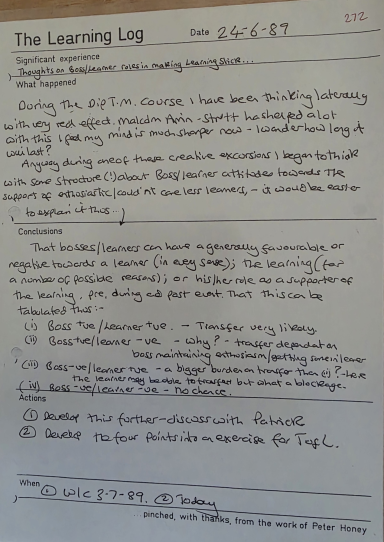 272
The Learning Log Date 24-6-89
Significant experience
Thoughts on Boss/Learner roles in making Learning Stick...
What happened
During the Dip T.M. Course I have been thinking laterally
with very red effect. malcolm Strutt has helped a lot
with this I feel my mind is much sharper now - I wonder how long it
will last?
Anyway during one of these creative excursions I began to think
with some structure (!) about Boss/learner attitudes towards the
support of enthusiastic/could'nt care less learners, - it would be easier
to explain it thus...
Conclusions
That bosses/learners can have a generally favourable or
negative towards a learner (in every sense); the learning (for
a number of possible reasons); or his/her role as a supporter of
the learning, pre, during and past event. That this can be
tabulated thus:-
(i) Boss +ve/Learner +ve. - Transfer very likely.
(ii) Boss +ve/learner -ve - why? - transfer dependant on
boss maintaining enthusiasm/getting some in learner
(iii) Boss -ve/learner +ve - a bigger burden on transfer than (ii)? - here
the learner may be able to transfer but what a blockage.
(iv) Boss -ve/learner -ve - No chance.
Actions
① Develop this further - discuss with Patrick
② Develop the four points into an exercise for T of L.
When
① W/C 3-7-89. ② Today
pinched, with thanks, from the work of Peter Honey